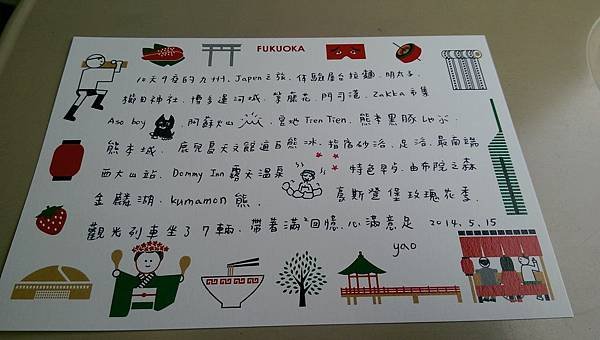 FUKUOKA
10天9夜的九州、Japen之旅、体驗屋台拉麵、明太子、
櫛田神社、博多運河城、紫藤花、門司港、Zakka市集
Aso boy、阿蘇火山、宮地 Tren Tien、熊本黑豚しゃぶ
熊本城、鹿兒島天文館這白熊冰、指宿砂浴、足浴、最南端
西大山站、Dommy Inn 露天温泉 特色早点、由布院之森
金麟湖、kumamon 熊、豪斯登堡玫瑰花季、
觀光列車坐了7輛、帶著滿²回憶、心滿意足 2014.5.15
yao